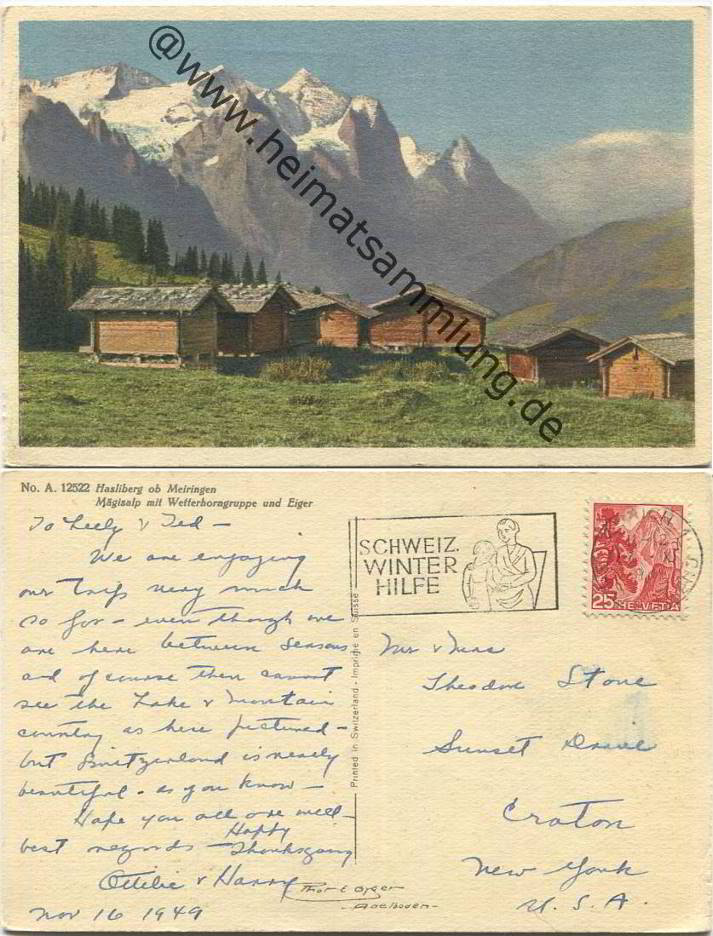 @www.heimatsammlung.de
No. A. 12522 Hasliberg ob Meiringen
Mägisalp mit Wetterhorngruppe und Eiger
To Leely & Ted –
We are enjoying
our trip very much
so far – even though we
are here between seasons
and of course then cannot
see the Lake & Mountain
country as here pictured –
but Switzerland is
beautiful – as you know –
Hope you all are well –
Happy
best regards – Thanksgiving
Ottilie & Harry
Nov 16 1949
SCHWEIZ.
WINTER
HILFE
25 HELVETIA
Printed in Switzerland - Imprimé en Suisse
Mr & Mrs
Theodore Stone
Sunset Drive
Croton
New York
U. S. A.
Phot E Gyger
Adelboden